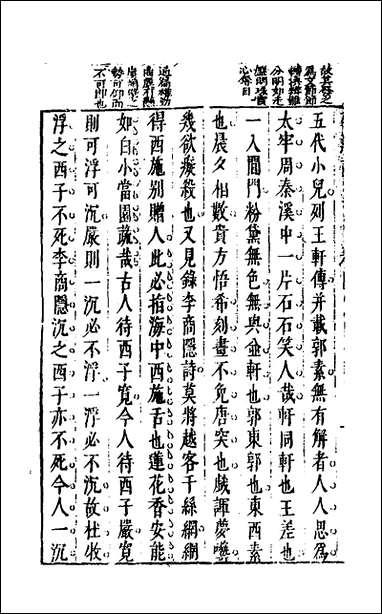 故其發之
爲文節節
轉換雜
分明如
歷明珠實
心奪目
五代小兒刻王軒傳并載郭素無有解者人人思爲
太牢周秦溪中一片石石笑人哉軒同軒也王差也
一入閶門粉黛無色無與並軒也郭東郭也東西素
也晨夕相數貴方悟希刻畫不免唐突也戲譁夔囈
幾欲癡殺也又見錄李商隱詩莫將越客千絲網網
得西施別贈人此必指海中西施舌也蓮花香安能
如白小當園蔬哉古人待西子寬今人待西子嚴寬
則可浮可沉嚴則一沉必不浮一浮必不沉故杜牧
浮之西子不死李商隱沉之西子亦不死今人一沉
勢可仰而
不可卽也